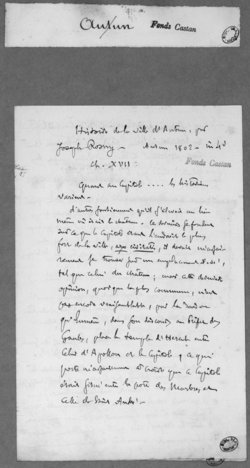 Autun Fonds Castan
Histoire de la ville d'Autun, par
Joseph Rosny — Autun 1802 — in 4º
ch. XVII : Fonds Castan
Quand au Capitol .... les historiens
varient —
D'autres soutiennent qu'il s'élevait au lieu
même où était le château. La dernière se fondent
sur ce que le Capitole étant l'endroit le plus
fort de la ville, arx civitatis, il devait
se trouver sur un emplacement élevé,
tel que celui du château ; mais cette dernière
opinion, quoique la plus commune, n'est
pas encore vraisemblable, par la raison
qu'Eumène, dans son discours au Préfet des
Gaules, place le temple d'Hercule entre
celui d'Apollon et le Capitole ; ce qui
porte à croire que ce Capitole
était situé entre la porte des Marbres, et
celle de Saint André —